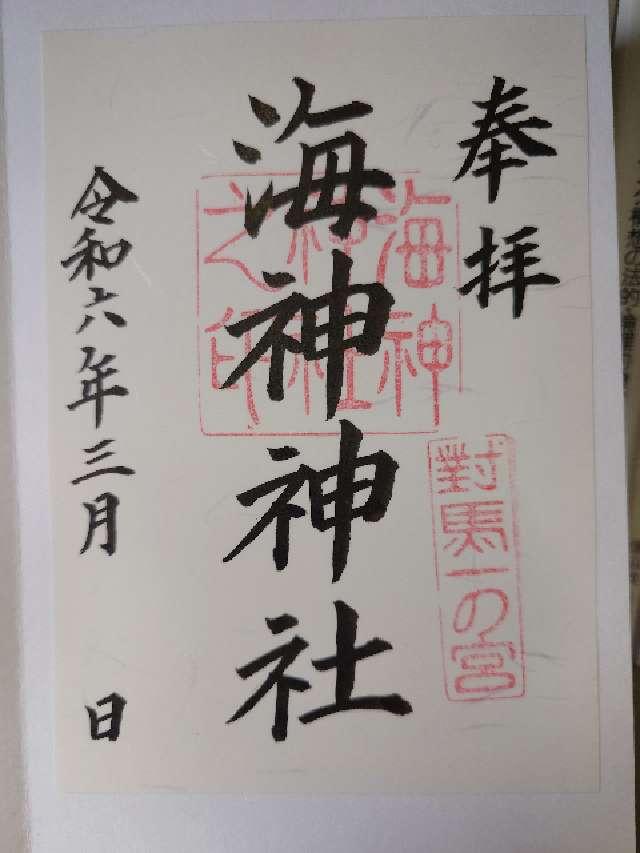 奉拝
對馬一の宮
海神神社
海神神社之印
令和六年三月 日